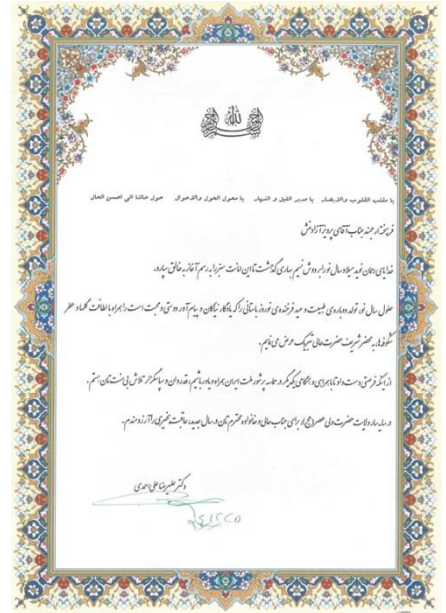 بسم الله الرحمن الرحیم
یا مقلب القلوب والابصار یا مدبر اللیل و النهار یا محول الحول والاحوال حول حالنا الی احسن الحال
فرهیخته ارجمند جناب آقای پرویز آزادمنش
خدایای رحمان نوید میلاد سال نو را بر دوش نسیم بهاری گذاشت تا این امانت سبز را به رسم آغاز به خالق بسپارد.
حلول سال نو، تولد دوباره‌ی طبیعت و عید فرخنده‌ی نوروز باستانی را که یادگار نیاکان و پیام آور دوستی و محبت است را همراه با لطافت گلها و عطر
شکوفه‌ها، به محضر شریف حضرت عالی تبریک عرض می نمایم.
از اینکه فرصتی دست داد تا با همراهی و همگامی یکدیگر در حماسه پرشور ملت ایران همراه و یاور باشیم، قدردان و سپاسگزار تلاش بی منت تان هستم.
در سایه سار ولایت حضرت ولی عصر (عج)، برای جناب عالی و خانواده محترم تان در سال جدید، عاقبت بخیری را آرزومندم.
دکتر علیرضا علی احمدی